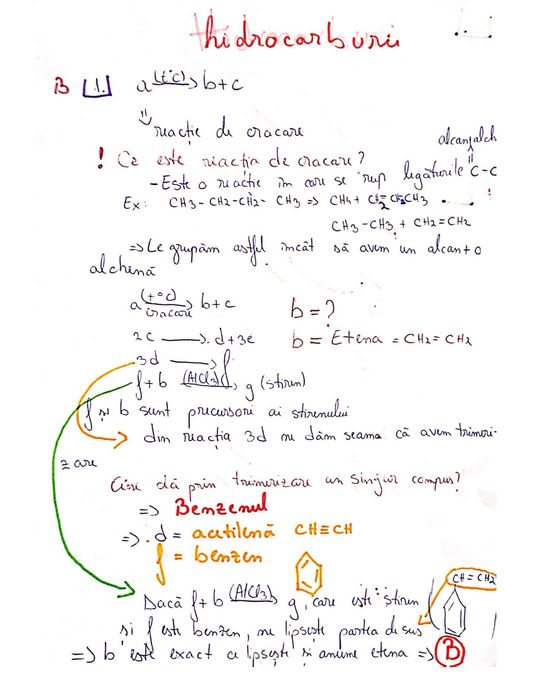 hidrocarburii
B 1. a (t°c)→ b+c
reacție de cracare
alcan|alch
! Ce este reacția de cracare?
-Este o reacție în care se rup legăturile C-C !
Ex: CH3-CH2-CH2-CH3 => CH4 + CH2=CH2CH3
CH3-CH3 + CH2=CH2
=> Le grupăm astfel încât să avem un alcan + o
alchenă
a (t°c) cracare → b+c b=?
2c → d+3e b = Etena = CH2=CH2
3d → f
f+b (AlCl3)→ g (stiren)
f și b sunt precursori ai stirenului
din reacția 3d ne dăm seama că avem trimeri-
zare
Cine dă prin trimerizare un singur compus?
=> Benzenul
=> d = acetilenă CH≡CH
f = benzen
CH=CH2
Dacă f+b (AlCl3)→ g, care este stiren
și f este benzen, ne lipsește partea de sus
=> b este exact ce lipsește și anume etena => B